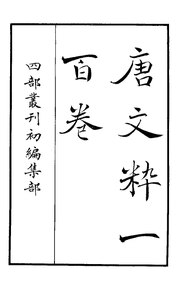 唐文粹一
百卷
四部叢刊初編集部